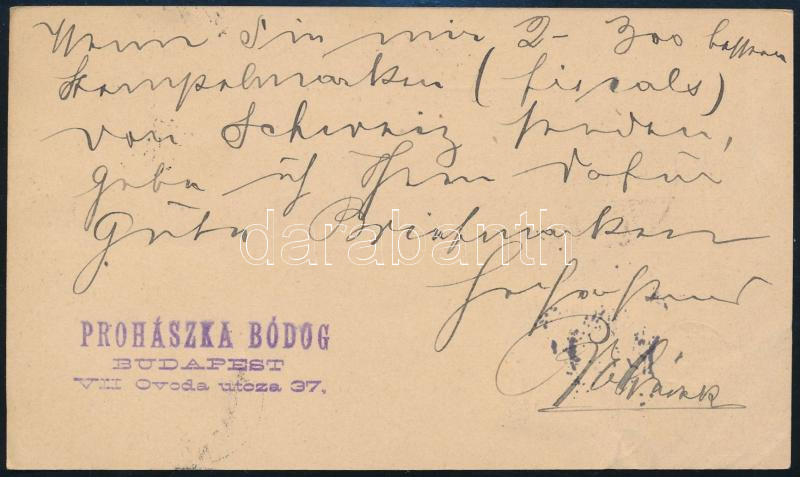 Wenn Sie mir 2-300 bessere
Stempelmarken (fiscals)
von Schweiz senden,
gebe ich Ihnen dafür
gute Briefmarken
Hochachtend
PROHÁSZKA BÓDOG
BUDAPEST
VII Ovoda utcza 37.
darabanth